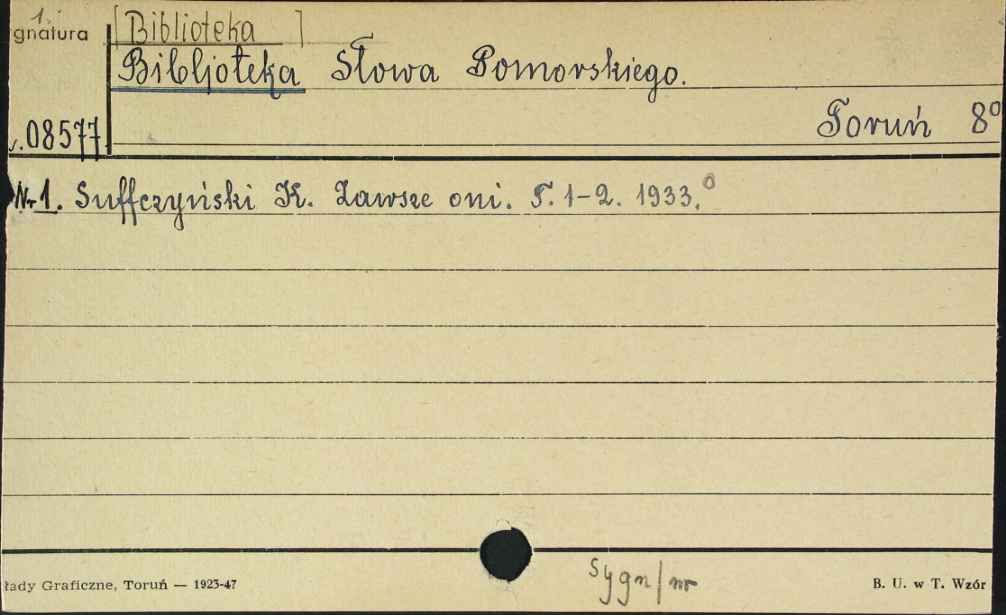 1.
gnatura [Biblioteka ]
Bibljoteka Słowa Pomorskiego.
08577 Toruń 8°
Nr 1. Suffczyński K. Zawsze oni. T. 1-2. 1933.°
łady Graficzne, Toruń — 1923-47
Sygn/nr
B. U. w T. Wzór